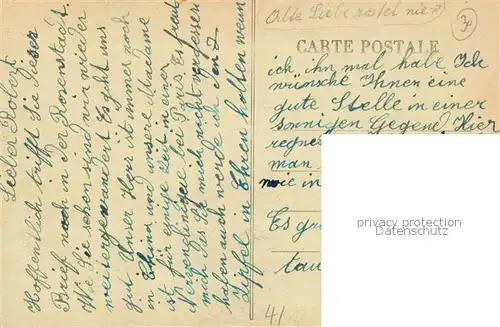 Alte Liebe rostet nie
30
CARTE POSTALE
Lieber Robert
Hoffentlich trifft Sie dieser
Brief noch in der Rosenstadt.
Wie Sie sehen sind wir wieder
weitergewandert Es geht uns
gut Unser Herr ist immer noch
in und unsere Madame
ist für einige Zeit in einer
bei Paris Es freut
mich das Sie mich nicht vergessen
haben auch werde ich den
Zipfel in Ehren halten wenn
ich ihn mal habe Ich
wünsche Ihnen eine
gute Stelle in einer
sonnigen Gegend Hier
regne
man
wie in
Es gr
tau
41
privacy protection
www.ansichtskarten-center.de